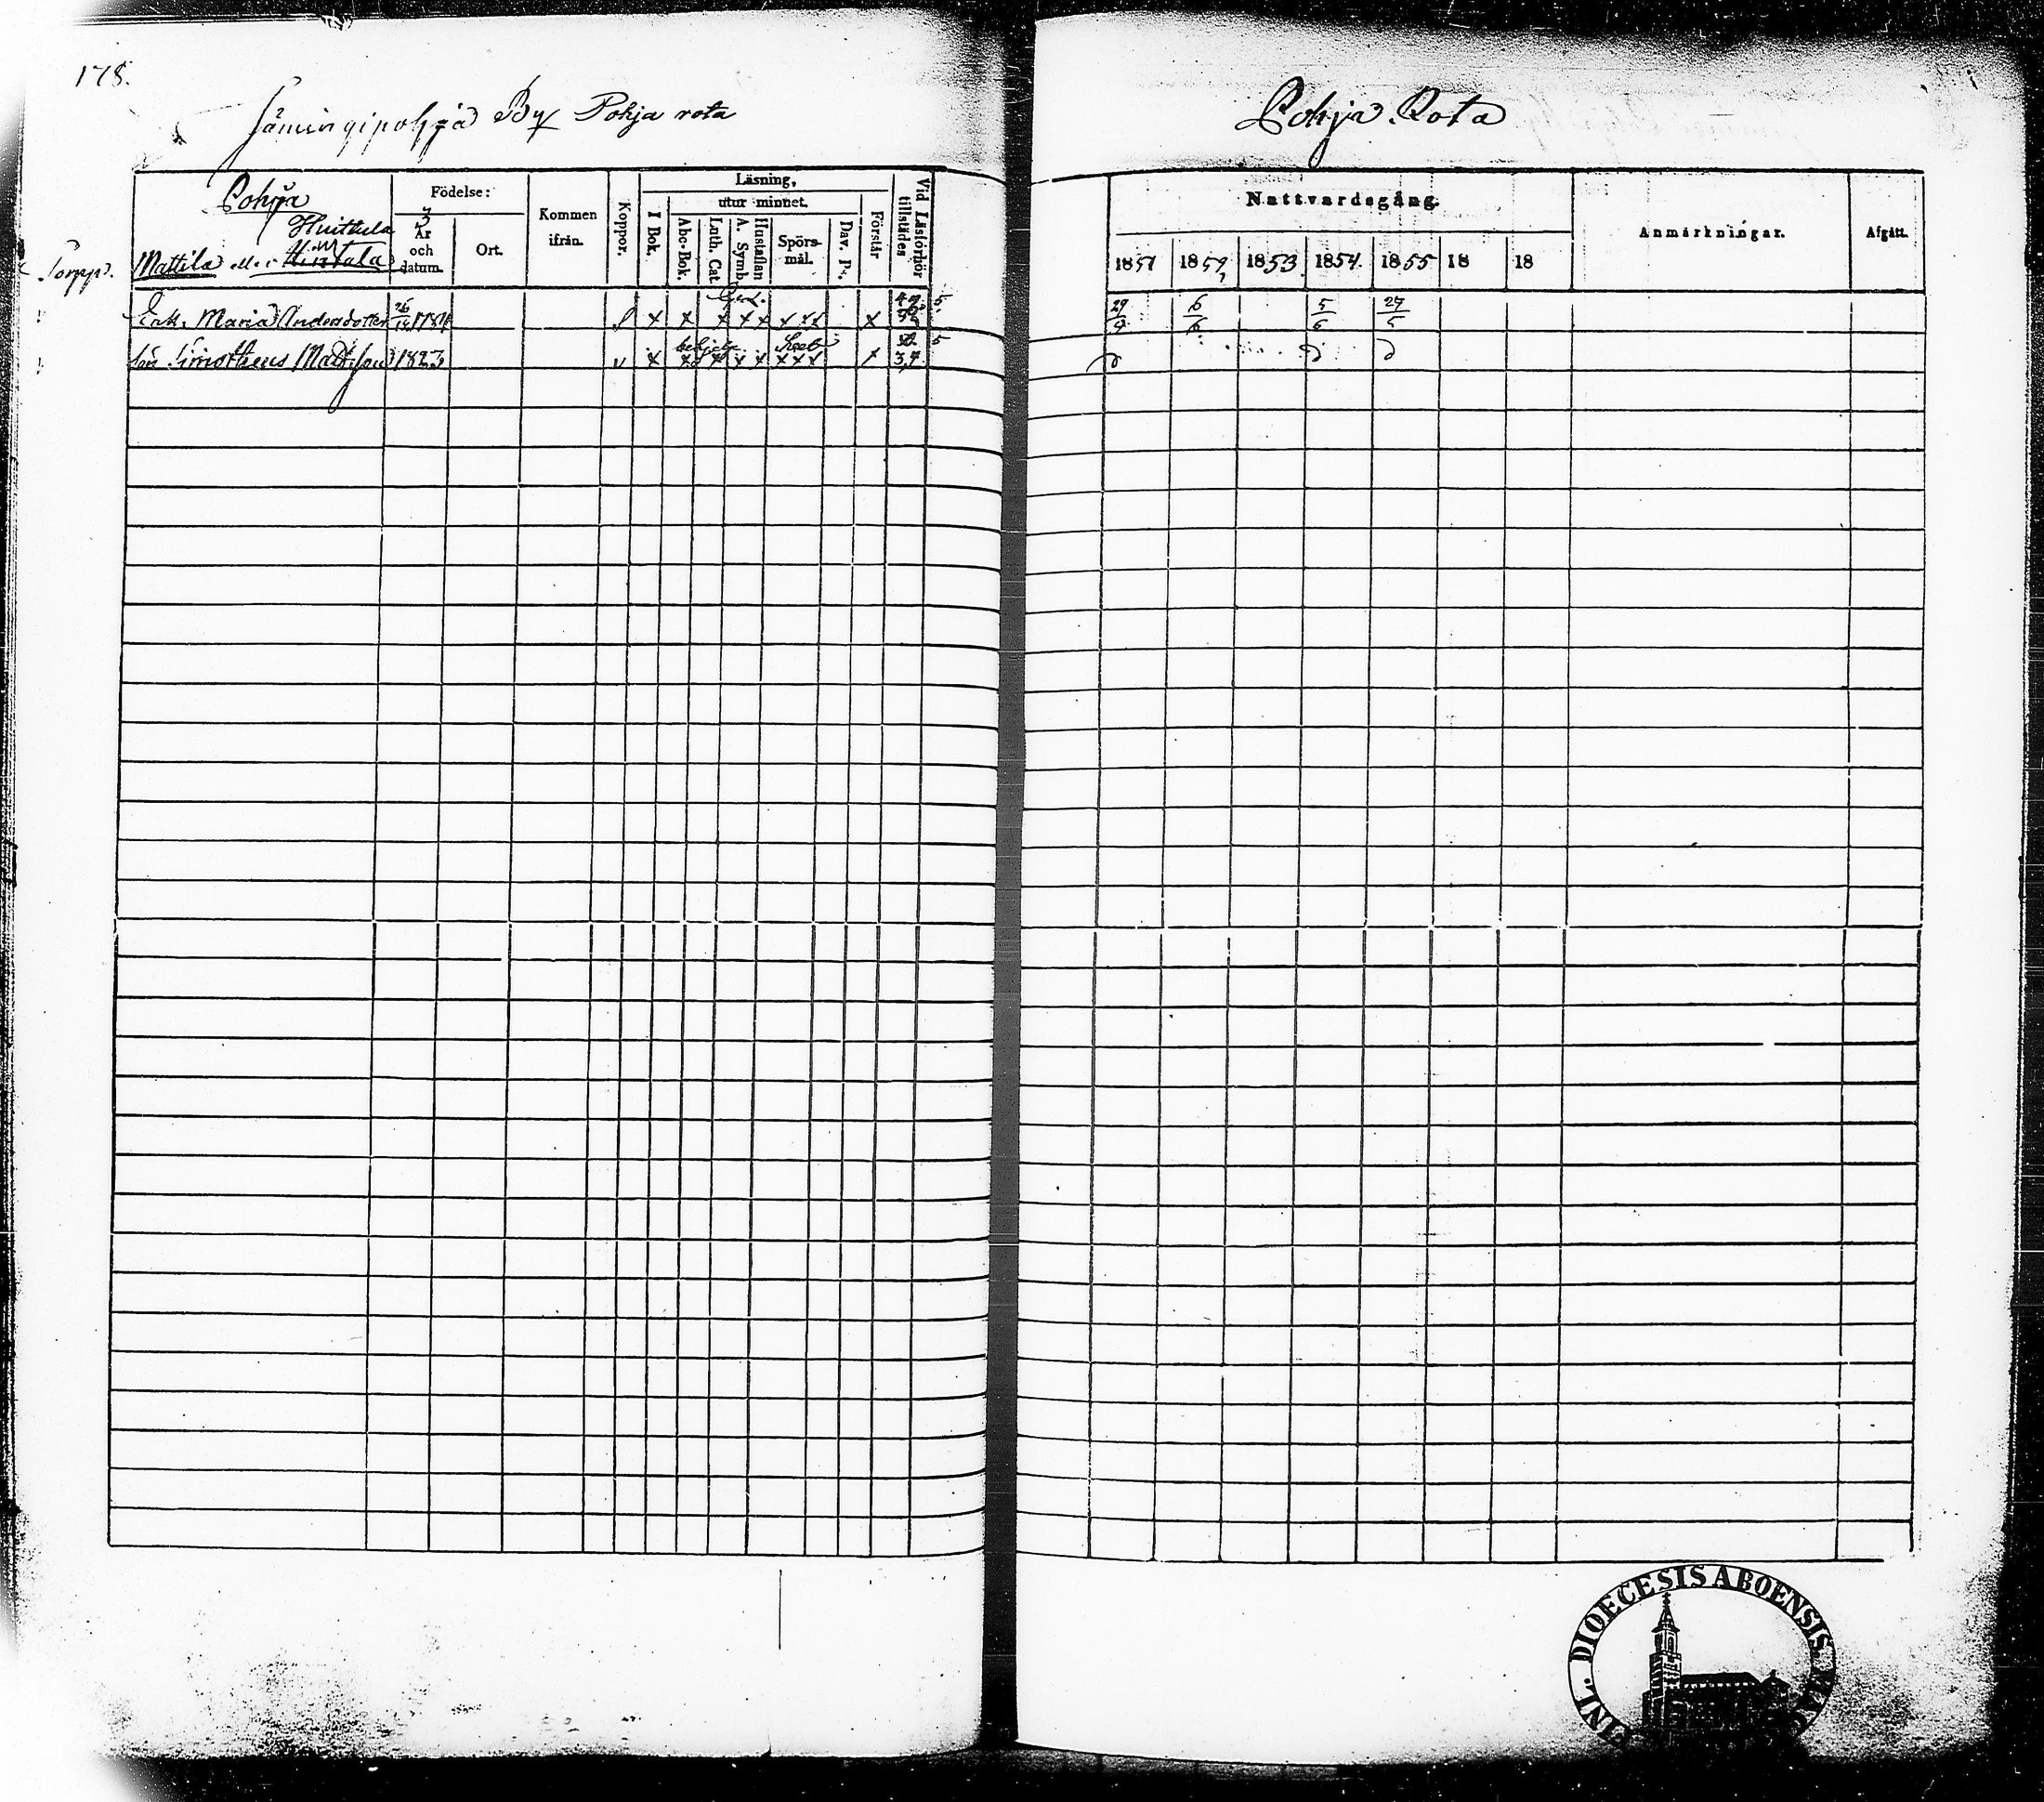 178.
Jämingipohja By Pohja rota
Pohja Rota
Pohja
Huittula
Mattila eller
Torpp.
Födelse:
År och datum.
Ort.
Kommen ifrån.
Koppor.
Läsning,
utur minnet.
I Bok.
Abc-Bok.
Luth. Cat.
A. Symb.
Hustaflan
Spörsmål.
Dav. Ps.
Förstår
Vid Läsförhör tillstädes
Nattvardsgång.
1851 1852, 1853 1854 1855 18 18
Anmärkningar.
Afgått.
Enk. Maria Andersdotter x x x x x x x x x 5 29 6/6 5/6 27/5
Son Timotheus Mattsson 1823 x x x x x x x x x 5
FINL. DIOECESIS ABOENSIS